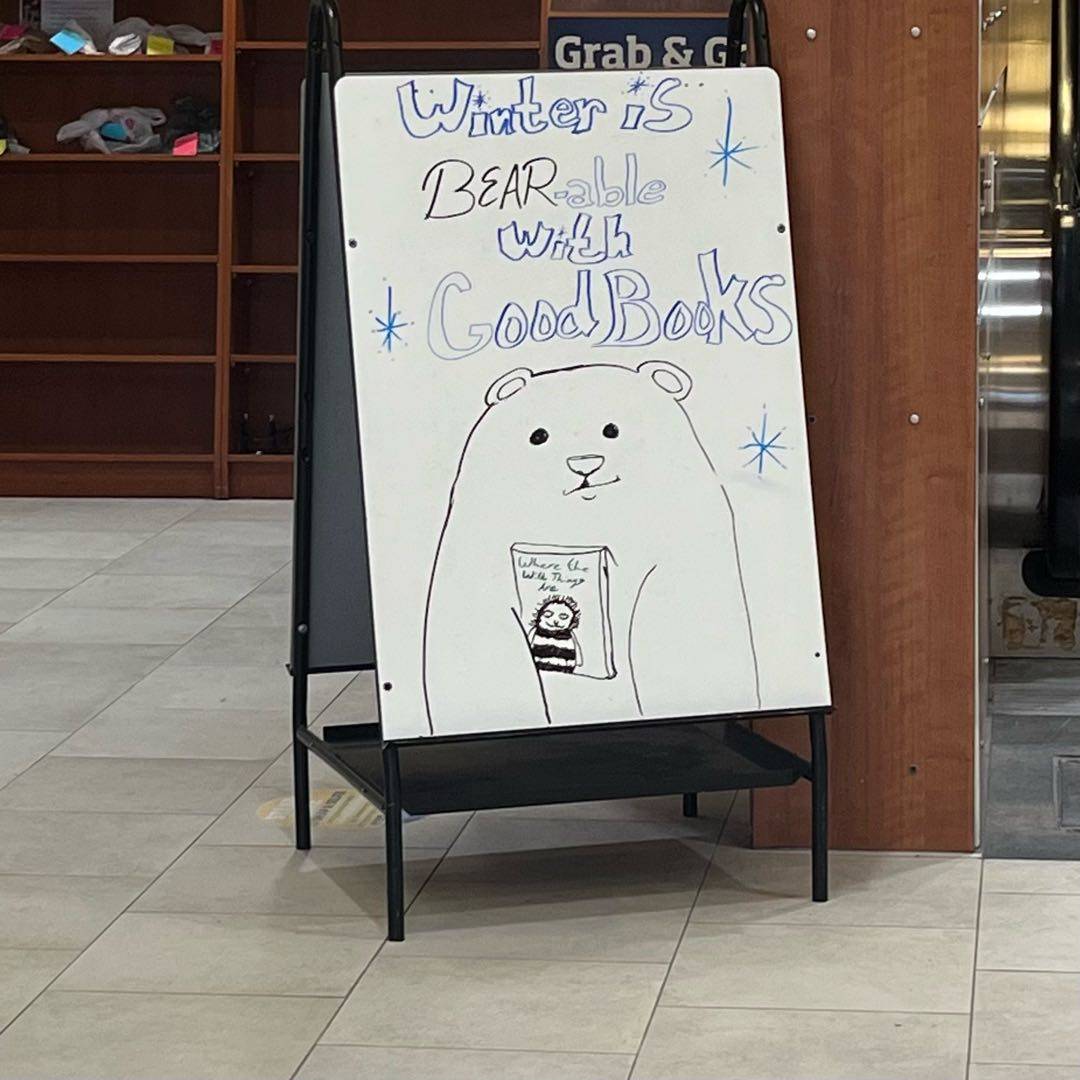 Grab & G
Winter is
BEAR-able
with
Good Books
Where the
Wild Things
Are